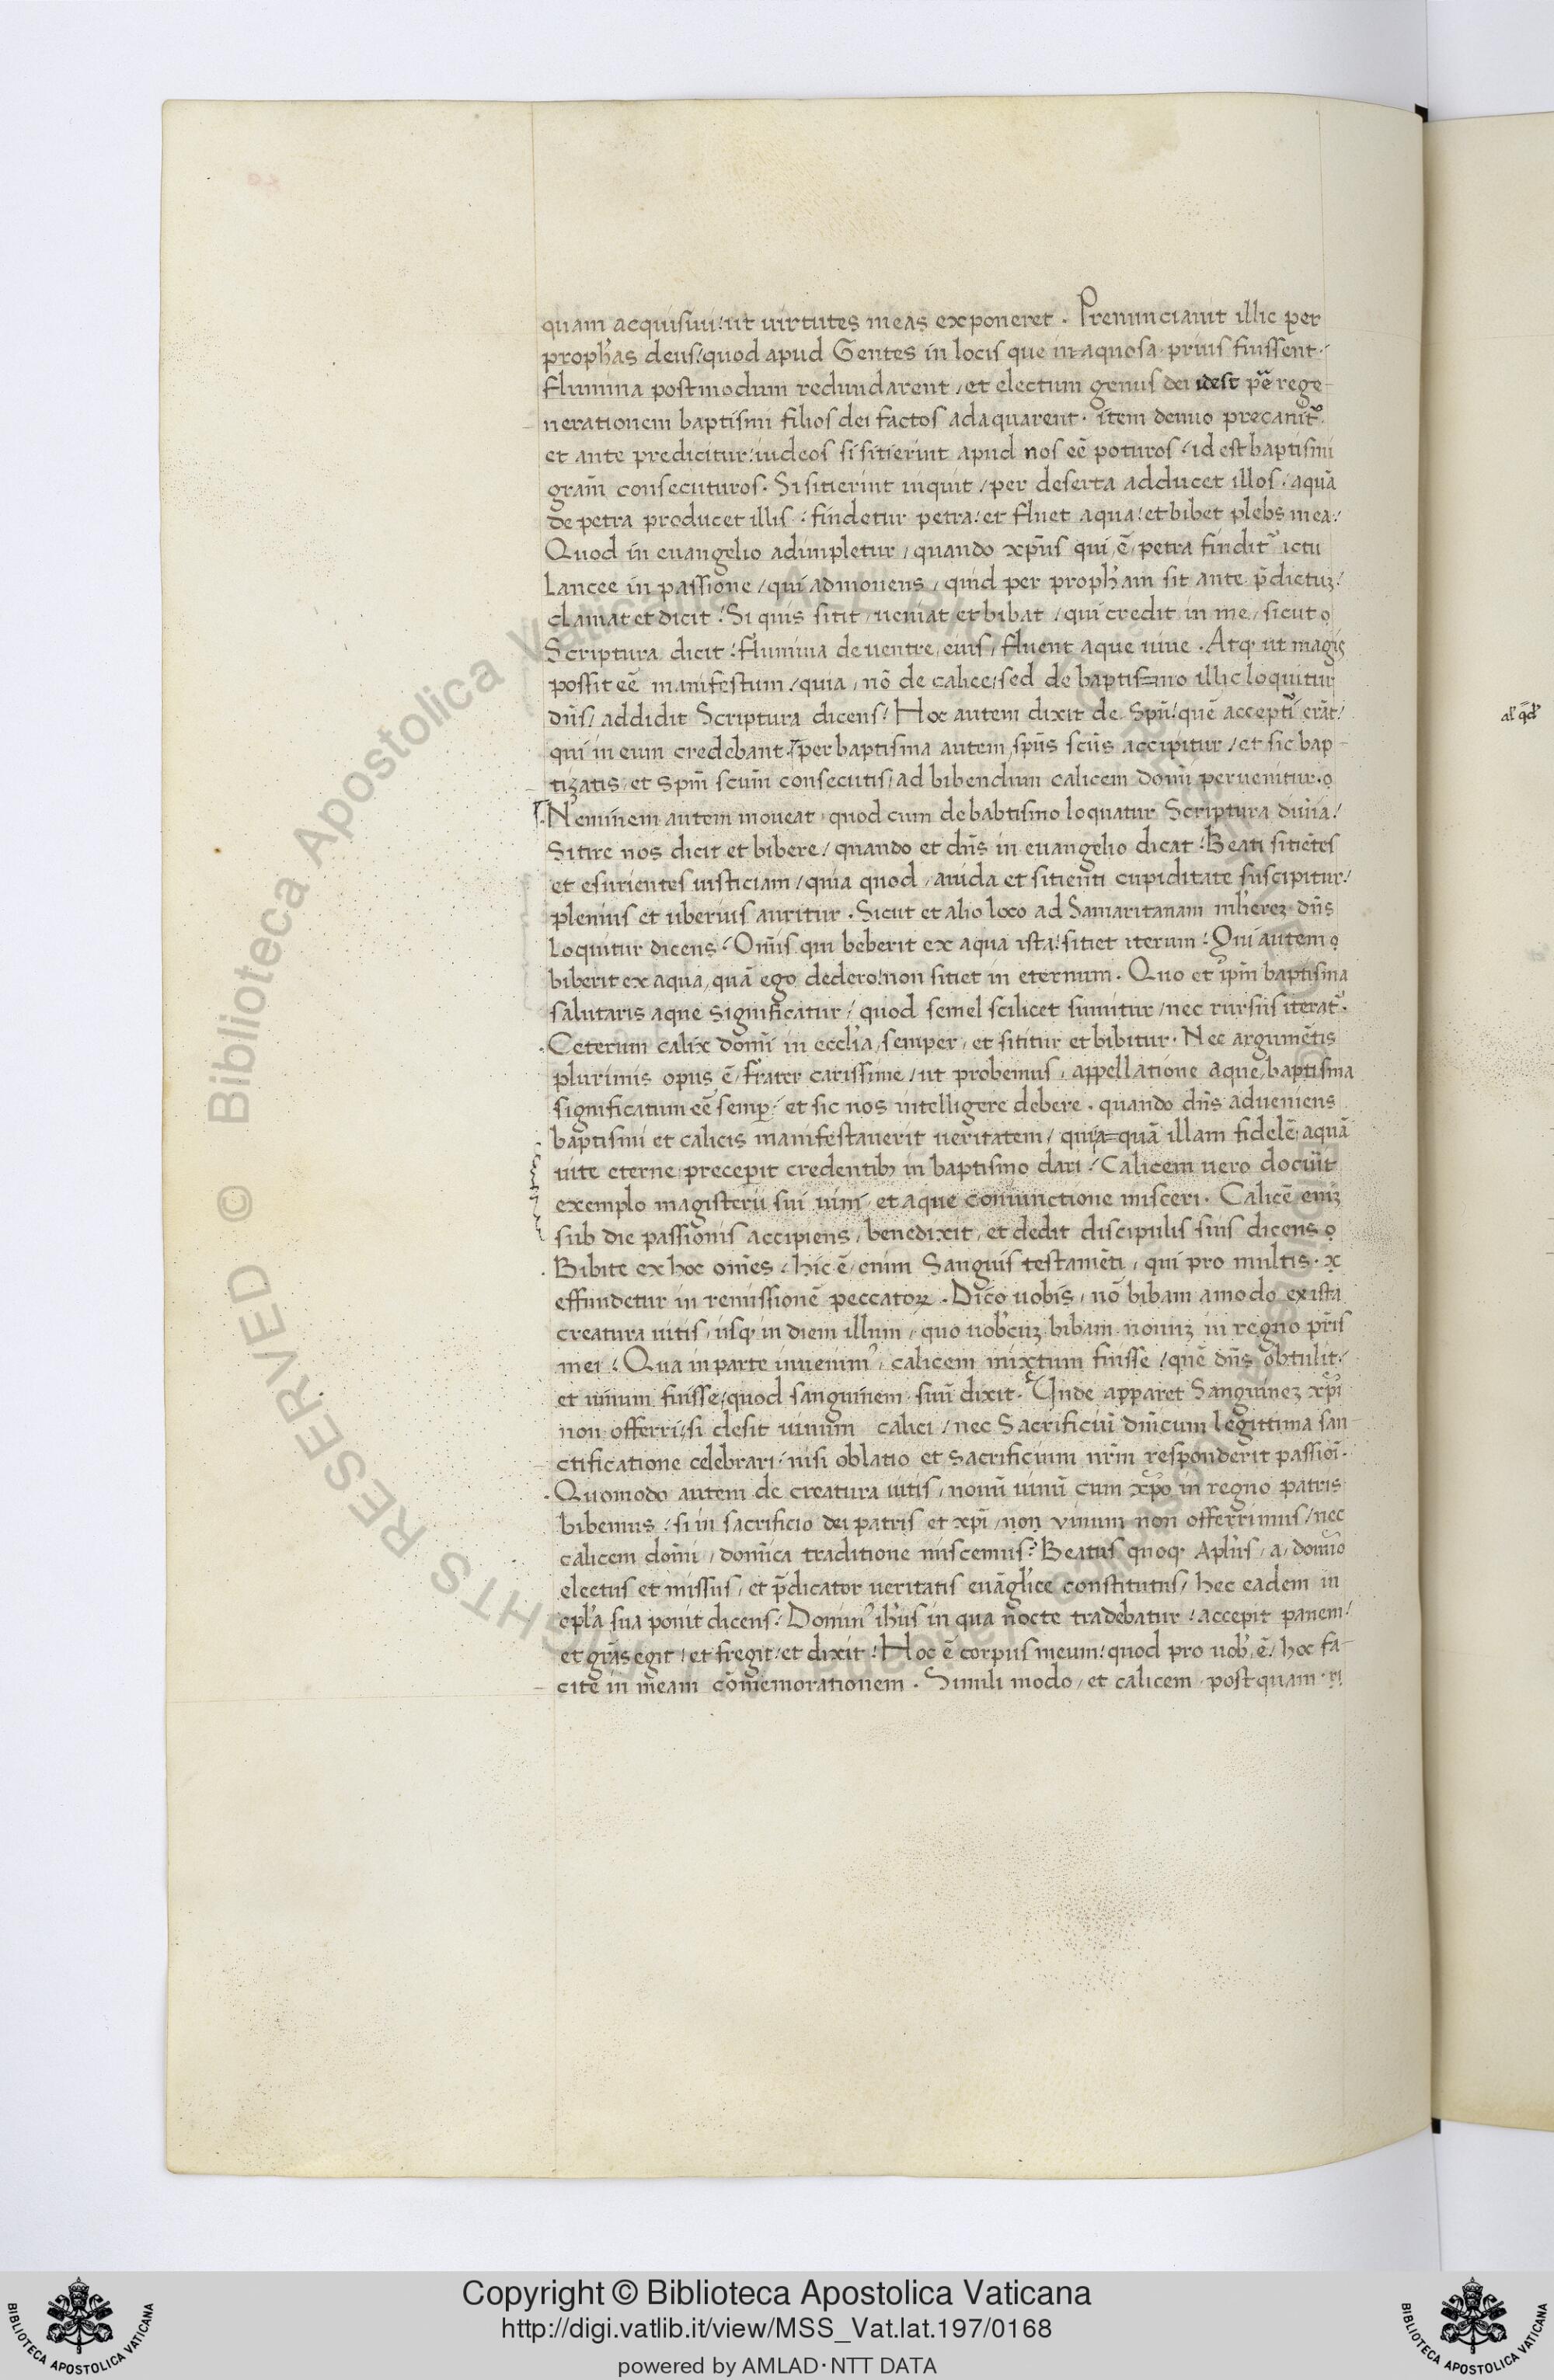 quam acquisiui / ut uirtutes meas exponeret . Prenunciauit illic per
proph'as deus / quod apud Gentes in locis que inaquosa prius fuissent /
flumina postmodum redundarent / et electum genus dei idest pẽ rege-
nerationem baptismi filios dei factos adaquarent . item denuo precanit᷑
et ante predicitur / iudeos si sitierint apud nos eẽ poturos / id est baptismi
gram̃ consecuturos . Si sitierint inquit / per deserta adducet illos / aquã
de petra producet illis / findetur petra / et fluet aqua / et bibet plebs mea /
Quod in euangelio adimpletur / quando xp̃us qui ẽ petra findit᷑ ictu
Lancee in passione / qui admonens / quid per proph'am sit ante p̃dictuʒ /
clamat et dicit / Si quis sitit / ueniat et bibat / qui credit in me / sicut
Scriptura dicit / flumina de uentre eius / fluent aque uiue . Atq ut magis
possit eẽ manifestum / quia / nõ de calice / sed de baptismo illic loquitur
dñs / addidit Scriptura dicens / Hoc autem dixit de Spũ / quẽ accepti᷑ erãt /
qui in eum credebant . per baptisma autem sp̃us sc̃us accipitur / et sic bap-
tizatis / et Spm̃ scum̃ consecutis / ad bibendum calicem domĩ peruenitur .
Neminem autem moueat quod cum de babtismo loquatur Scriptura diuĩa /
Sitire nos dicit et bibere / quando et dñs in euangelio dicat / Beati sitiẽtes
et esurientes iusticiam / quia quod / auida et sitienti cupiditate suscipitur /
plenius et uberius auritur . Sicut et alio loco ad Samaritanam mlierez dñs
loquitur dicens / Om̃is qui beberit ex aqua ista / sitiet iterum / Qui autem
biberit ex aqua / quã ego dedero / non sitiet in eternum . Quo et ipm̃ baptisma
salutaris aque significatur / quod semel scilicet sumitur / nec rursus iterat᷑ .
Ceterum calix domĩ in eccl'ia / semper / et sititur et bibitur . Nec argumẽtis
plurimis opus ẽ / frater carissime / ut probemus / appellatione aque / baptisma
significatum eẽ semp̱ / et sic nos intelligere debere . quando dñs adueniens
baptismi et calicis manifestauerit ueritatem / quia quã illam fidelẽ aquã
uite eterne precepit credentibꝫ in baptismo dari / Calicem uero docuit
exemplo magisterii sui uini et aque coniunctione misceri . Calicẽ eniʒ
sub die passionis accipiens / benedixit / et dedit discipulis suis dicens
Bibite ex hoc om̃es / hic ẽ enim Sanguis testamẽti / qui pro multis .
effundetur in remissionẽ peccatoꝝ . Dico uobis / nõ bibam amodo ex ista
creatura uitis / usq in diem illum / quo uob'cuʒ bibam nouuʒ in regno pr̃is
mei / Qua in parte inuenim᷒ / calicem mixtum fuisse / quẽ dñs obtulit /
et uinum fuisse / quod sanguinem suũ dixit . Unde apparet Sanguineʒ xp̃i
non offerri / si desit uinum calici / nec Sacrificiũ dñicum legittima san-
ctificatione celebrari / nisi oblatio et sacrificium nr̃m responderit passioĩ .
Quomodo autem de creatura uitis / nouũ uinũ cum xp̃o in regno patris
bibemus / si in sacrificio dei patris et xp̃i / non vinum non offerrimus / nec
calicem domĩ / domĩca traditione miscemus ? Beatus quoq Apl'us / a / domĩo
electus et missus / et p̃dicator ueritatis euãgl'ice constitutus / hec eadem in
epl'a sua ponit dicens / Domin᷒ ih̃us in qua nocte tradebatur / accepit panem /
et grãs egit / et fregit / et dixit / Hoc ẽ corpus meum / quod pro uob' ẽ / hoc fa-
cite in meam cõmemorationem . Simili modo / et calicem postquam
al' qd̃
Copyright © Biblioteca Apostolica Vaticana
http://digi.vatlib.it/view/MSS_Vat.lat.197/0168
powered by AMLAD·NTT DATA
BIBLIOTECA APOSTOLICA VATICANA
BIBLIOTECA APOSTOLICA VATICANA